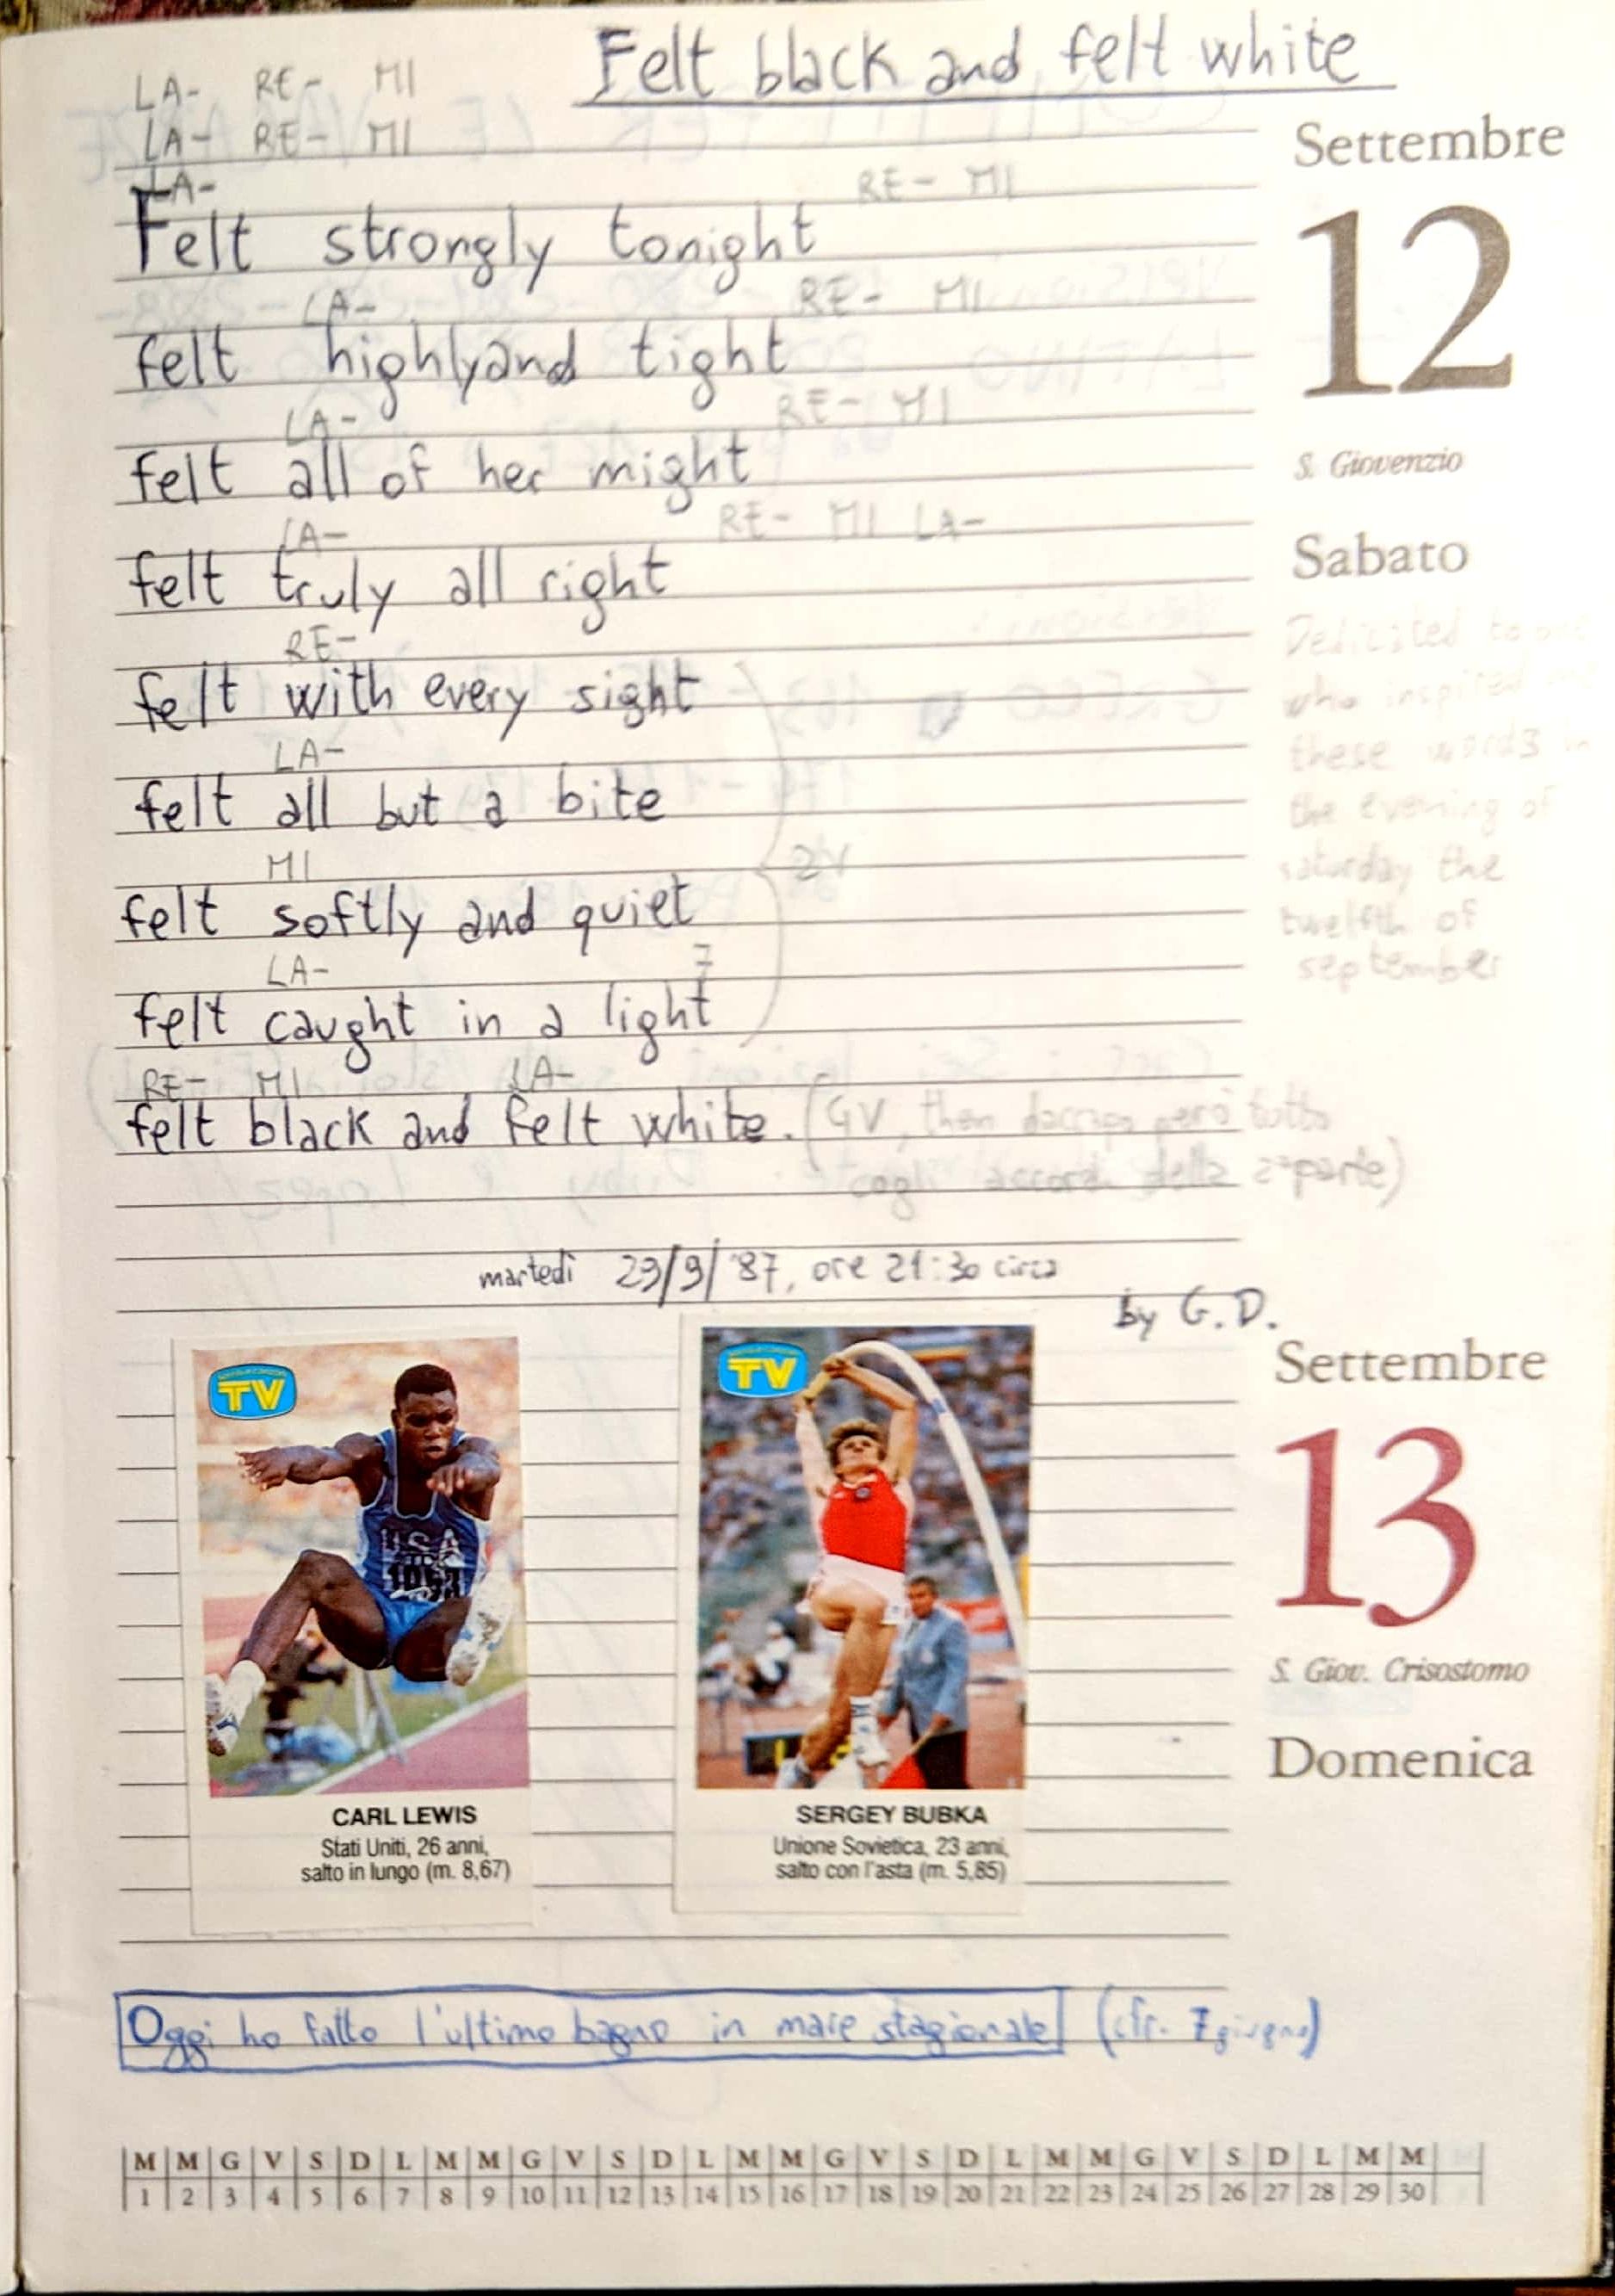 Felt black and felt white
LA- RE- MI
LA- RE- MI
LA- RE- MI
Felt strongly tonight
LA- RE- MI
felt highly and tight
LA- RE- MI
felt all of her might
LA- RE- MI LA-
felt truly all right
RE-
felt with every sight
LA-
felt all but a bite
MI
2V
felt softly and quiet
LA- 7
felt caught in a light
RE- MI LA-
felt black and felt white. (GV, then daccapo però tutto
cogli accordi della 2ª parte)
martedì 29/9/'87, ore 21:30 circa
by G.D.
Settembre
12
S. Giovenzio
Sabato
Dedicated to
who inspired
these words in
the evening of
saturday the
twelfth of
september
Settembre
13
S. Giov. Crisostomo
Domenica
TV
USA
CARL LEWIS
Stati Uniti, 26 anni,
salto in lungo (m. 8,67)
TV
SERGEY BUBKA
Unione Sovietica, 23 anni,
salto con l'asta (m. 5,85)
Oggi ho fatto l'ultimo bagno in mare stagionale (cfr. 7 giugno)
M M G V S D L M M G V S D L M M G V S D L M M G V S D L M M
1 2 3 4 5 6 7 8 9 10 11 12 13 14 15 16 17 18 19 20 21 22 23 24 25 26 27 28 29 30